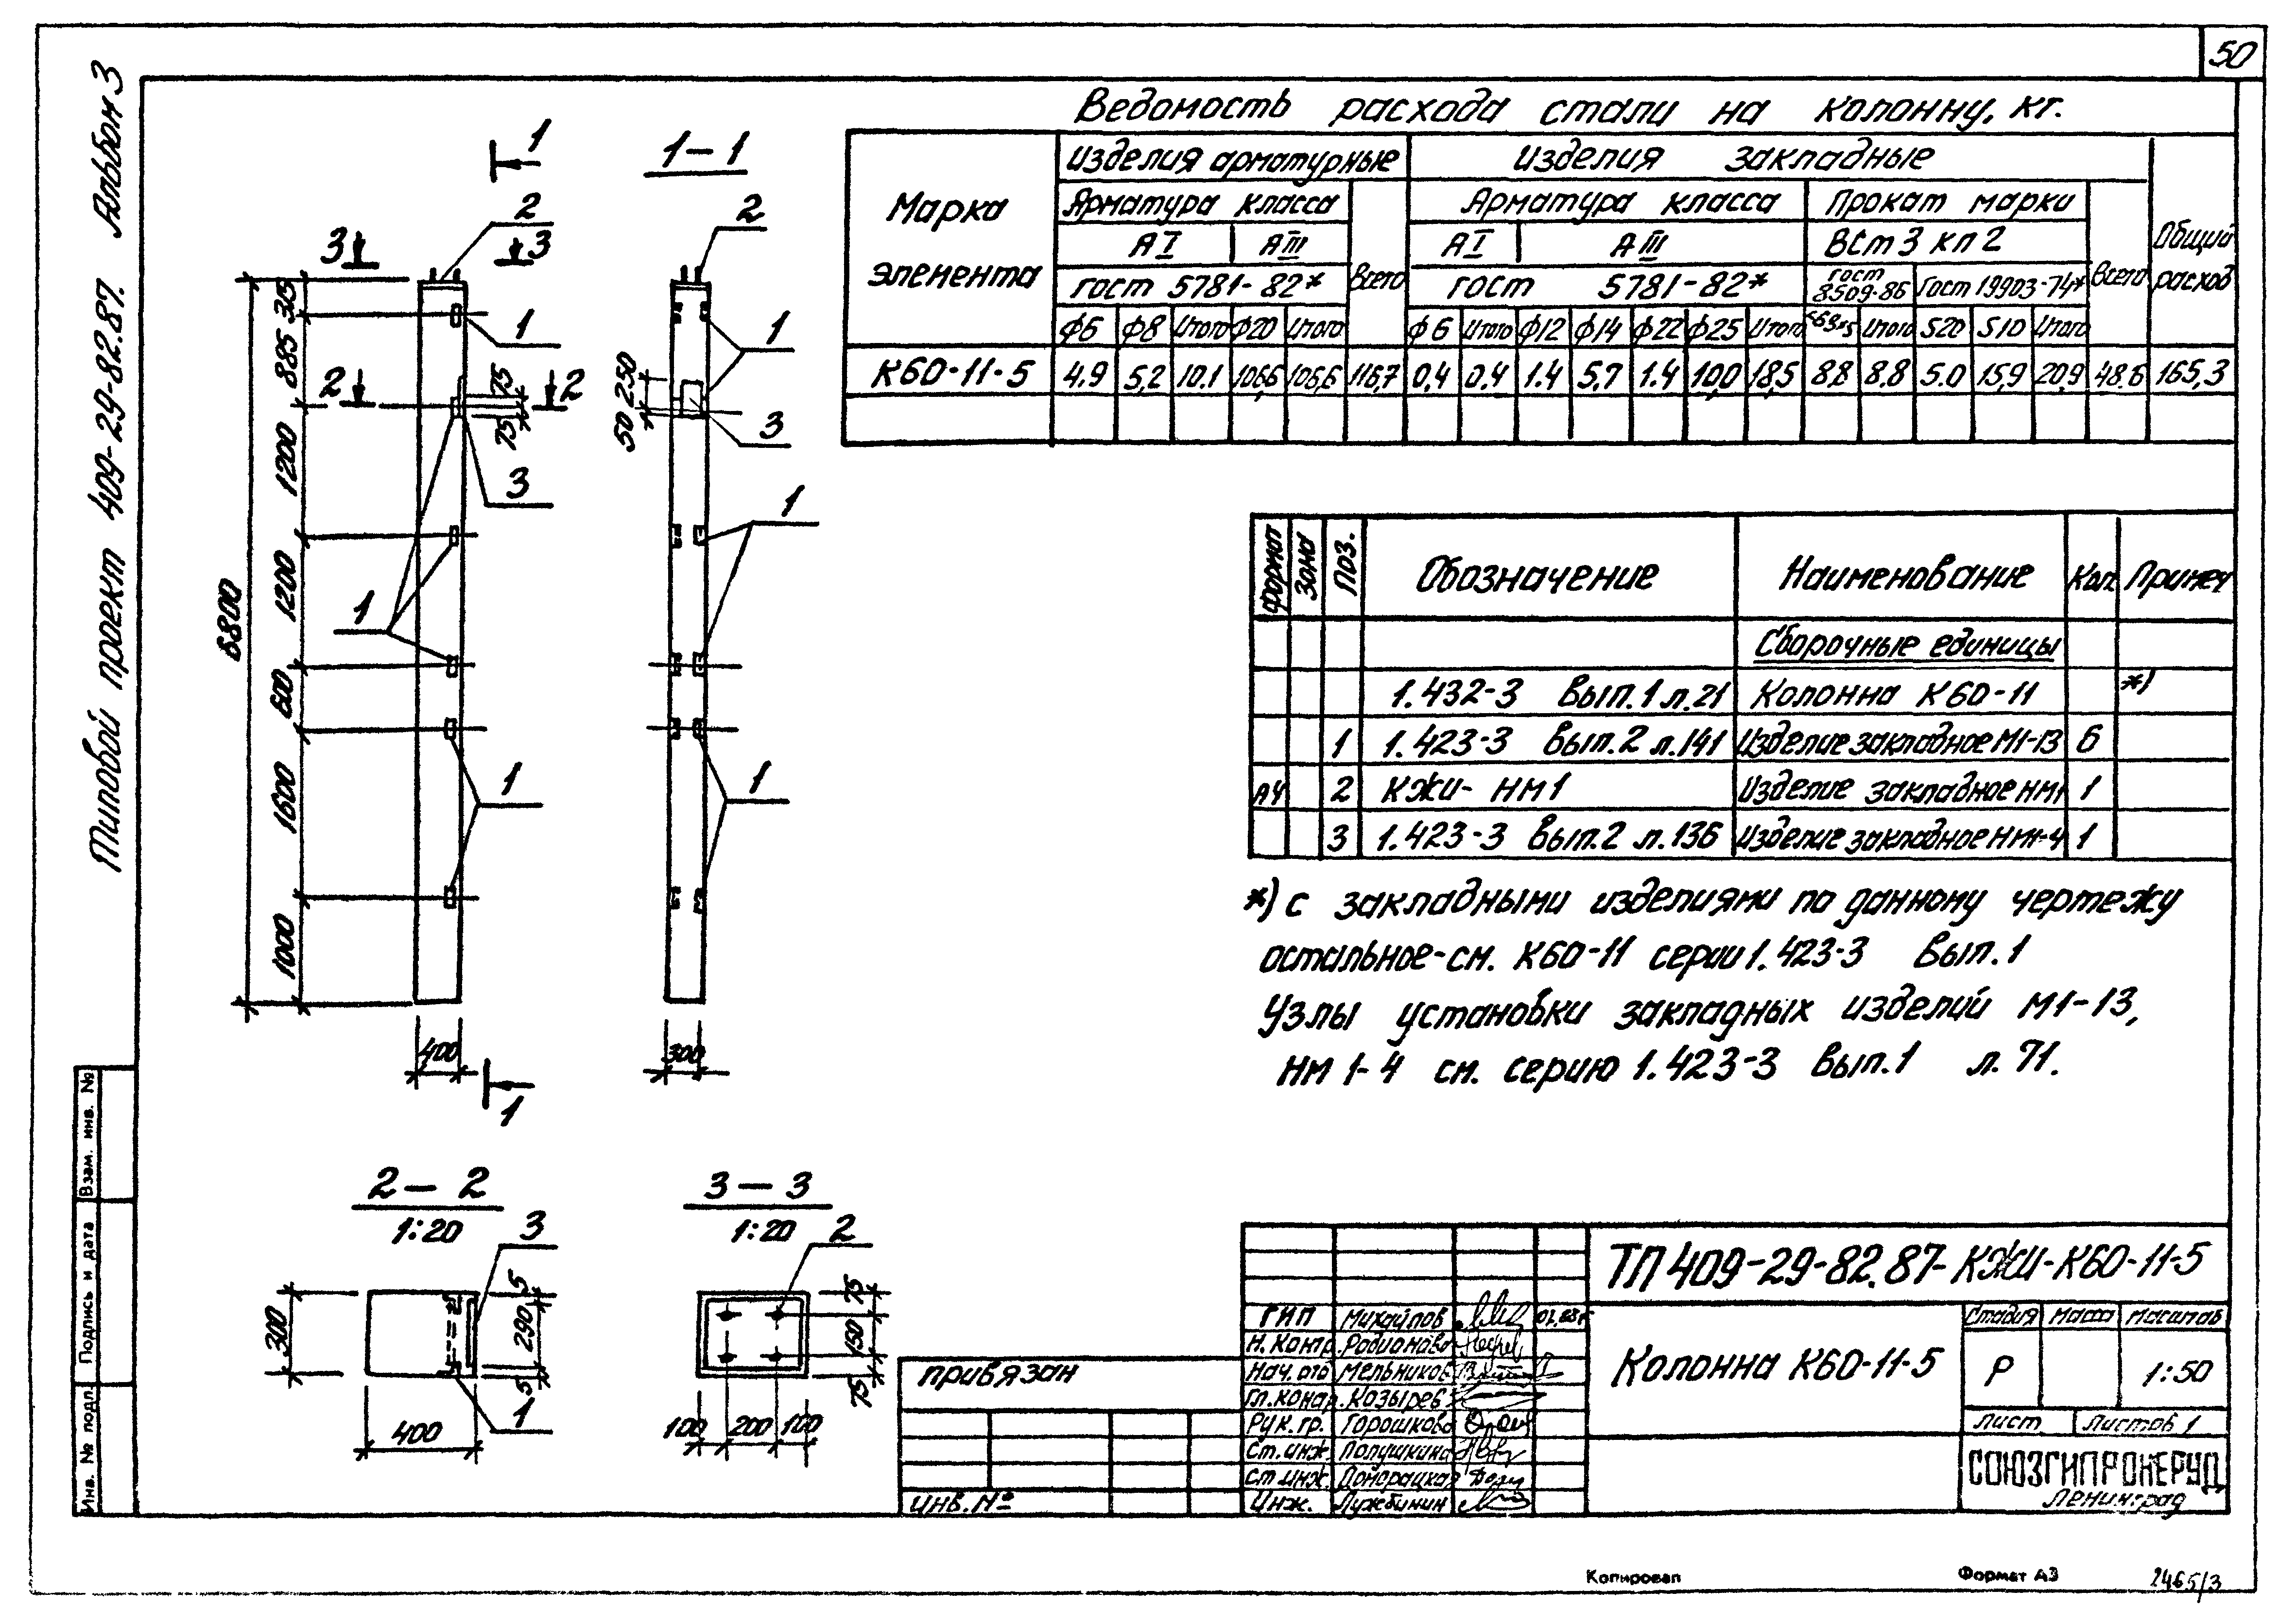 50
Типовой проект 409-29-82.87. Альбом 3
Ведомость расхода стали на колонну, кг.
Марка элемента
Изделия арматурные
Изделия закладные
Общий расход
Арматура класса
Всего
Арматура класса
Прокат марки
Всего
АI АIII
АI АIII
ВСт3 кп2
ГОСТ 5781-82*
ГОСТ 5781-82*
ГОСТ 8509-86
ГОСТ 19903-74*
ф6 ф8 Итого ф20 Итого ф6 Итого ф12 ф14 ф22 ф25 Итого Итого S20 S10 Итого
К60-11-5 4.9 5,2 10.1 106,6 106,6 116,7 0,4 0,4 1.4 5,7 1.4 10,0 18,5 8,8 8,8 5.0 15,9 20,9 48.6 165,3
1
1-1
2
2
3 3
315
1
1
885
250
2 75 2
50 75
3
3
1200
1
1200
1
6800
600
1
1
1600
1000
400
300
1
Формат Зона Поз. Обозначение Наименование Кол. Примеч
Сборочные единицы
1.432-3 Вып.1 л.21 Колонна К60-11 *)
1 1.423-3 Вып.2 л.141 Изделие закладное М1-13 6
А4 2 КЖИ- НМ1 Изделие закладное НМ1 1
3 1.423-3 Вып.2 л.136 Изделие закладное НМ1-4 1
*) с закладными изделиями по данному чертежу
остальное-см. К60-11 серии 1.423-3 Вып.1
Узлы установки закладных изделий М1-13,
НМ 1-4 см. серию 1.423-3 Вып.1 л. 71.
2-2
1:20
3
300
5
290
5
1
400
3-3
1:20
2
75
150
75
100 200 100
Взам. инв. №
Подпись и дата
Инв. № подл.
привязан
инв.№
ТП 409-29-82.87-КЖИ-К60-11-5
ГИП Михайлов
Н.контр. Родионова
Нач.отд Мельников
Гл.констр. Козырев
Рук.гр. Горошкова
Ст.инж. Полушкина
Ст.инж.
Инж. Лужбинин
Колонна К60-11-5
Стадия Масса Масштаб
Р 1:50
Лист Листов 1
СОЮЗГИПРОНЕРУД
Ленинград
Копировал
Формат А3
2465/3